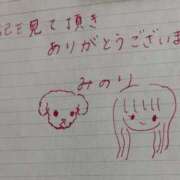 記を見て頂き
ありがとうございま
みのり